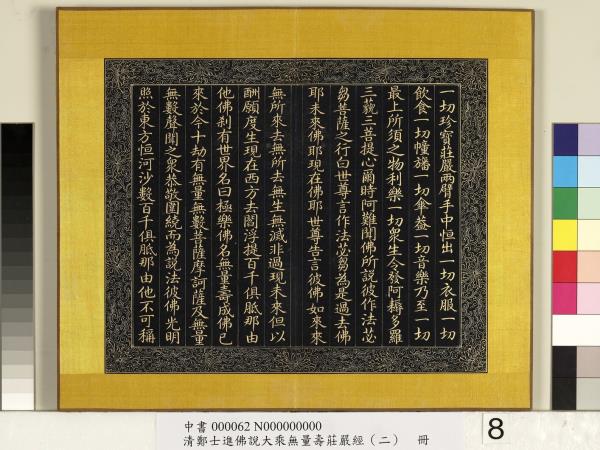 一切珍寶莊嚴兩臂手中恒出一切衣服一切
飲食一切幢旛一切傘蓋一切音樂乃至一切
最上所須之物利樂一切眾生令發阿耨多羅
三藐三菩提心爾時阿難聞佛所說彼作法苾
芻菩薩之行白世尊言作法苾芻為是過去佛
耶未來佛耶現在佛耶世尊告言彼佛如來來
無所來去無所去無生無滅非過現未來但以
酬願度生現在西方去閻浮提百千俱胝那由
他佛剎有世界名曰極樂佛名無量壽成佛已
來於今十劫有無量無數菩薩摩訶薩及無量
無數聲聞之眾恭敬圍繞而為說法彼佛光明
照於東方恒河沙數百千俱胝那由他不可稱
中書 000062 N000000000
清鄭士進佛說大乘無量壽莊嚴經(二) 冊
8